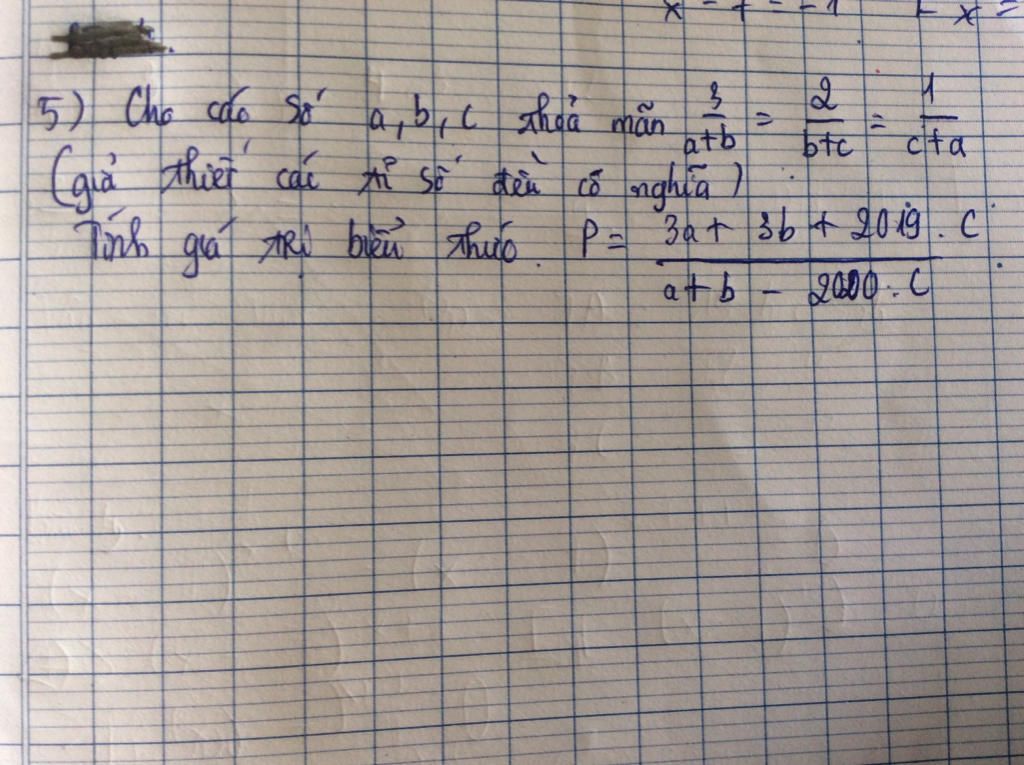 x - 7 = -1 - x =
5) Cho các số a, b, c thoả mãn 3/(a+b) = 2/(b+c) = 1/(c+a)
(giả thiết các tỉ số đều có nghĩa)
Tính giá trị biểu thức. P = (3a + 3b + 2019. c)/(a + b - 2020. c)